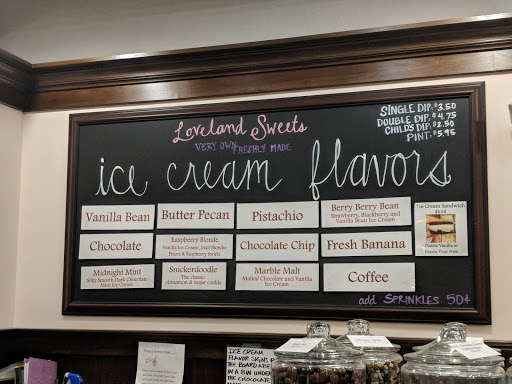 Loveland Sweets
VERY OWN FRESHLY MADE
ice cream flavors
SINGLE DIP: $3.50
DOUBLE DIP: $4.75
CHILD'S DIP: $2.50
PINT: $5.95
Vanilla Bean
Butter Pecan
Pistachio
Berry Berry Bean
Strawberry, Blackberry and
Vanilla Bean Ice Cream
Ice Cream Sandwich
Classic Vanilla or
Create Your Own
Chocolate
Raspberry Blonde
Vanilla Ice Cream, Malt Blonde
Pieces & Raspberry Swirls
Chocolate Chip
Fresh Banana
Midnight Mint
Silky Smooth Dark Chocolate
Mint Ice Cream
Snickerdoodle
The classic
cinnamon & sugar cookie
Marble Malt
Malted Chocolate and Vanilla
Ice Cream
Coffee
add SPRINKLES 50¢
ICE CREAM
FLAVOR SIGNS F
THE BOARD ARE
IN A BIN UNDER
THE CHOCOLATE